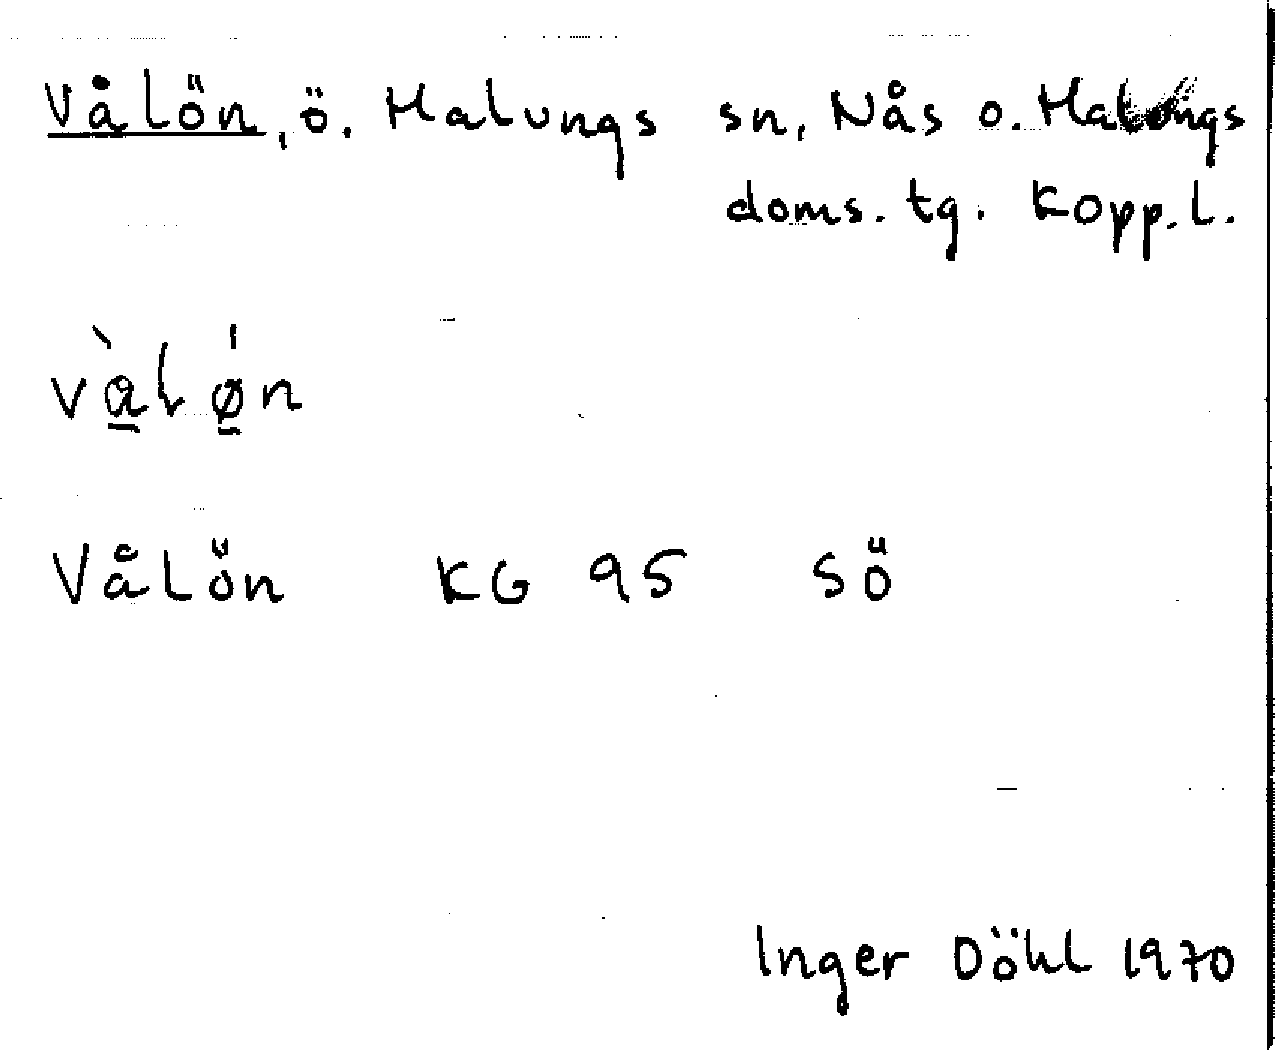 Vålön, ö. Malungs sn, Nås o. Malungs
doms. tg. Kopp. l.
Vålön KG 95 Sö
Inger Döhl 1970